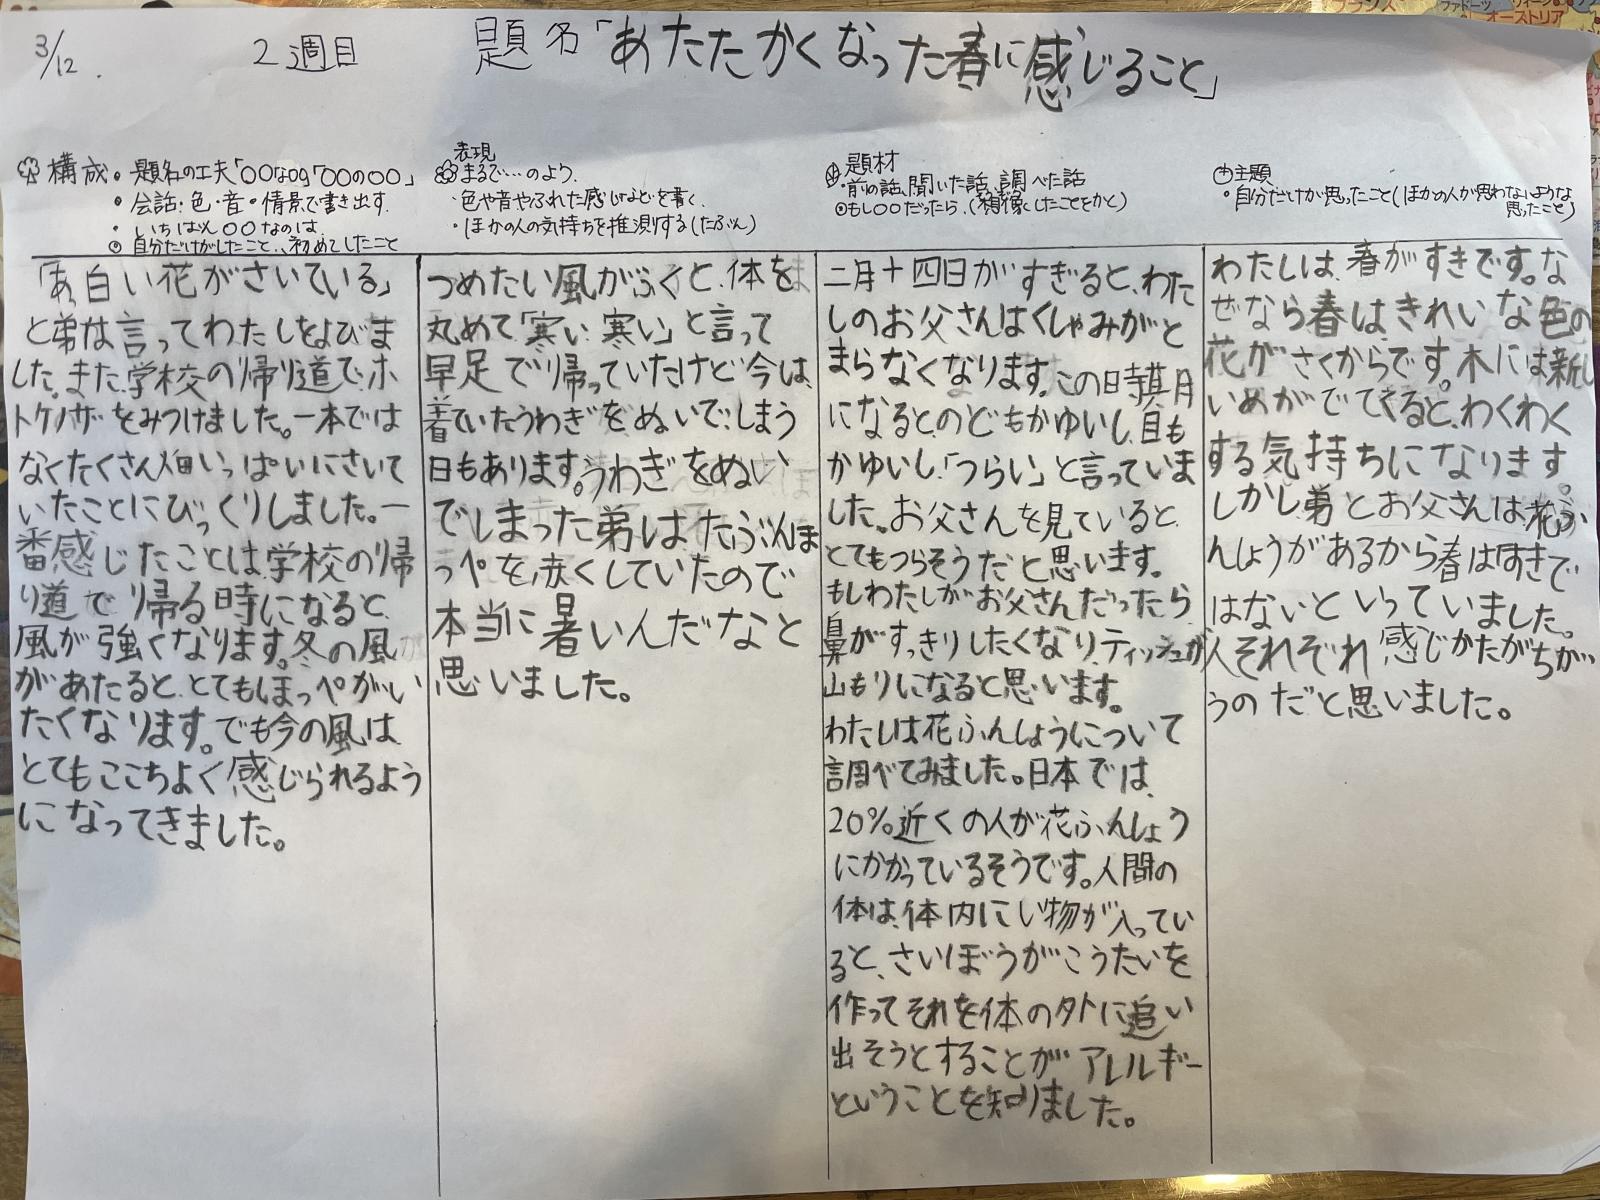 3/12.
2週目
題名「あたたかくなった春に感じること」
構成・題名の工夫「〇〇な〇〇」「〇〇の〇〇」
・会話・色・音・情景で書き出す
・いちばん〇〇なのは
自分だけがしたこと、初めてしたこと
「あ、白い花がさいている」
と弟は言ってわたしをよびま
した。また、学校の帰り道で、ホ
トケノザをみつけました。一本では
なくたくさん畑いっぱいにさいて
いたことにびっくりしました。一
番感じたことは、学校の帰
り道で帰る時になると、
風が強くなります。冬の風
があたると、とてもほっぺがい
たくなります。でも今の風は、
とてもここちよく感じられるよう
になってきました。
表現
まるで……のよう。
・色や音やふれた感じなどを書く。
・ほかの人の気持ちを推測する(たぶん)
つめたい風がふくと、体を
丸めて「寒い、寒い」と言って
早足で帰っていたけど今は、
着ていたうわぎをぬいでしまう
日もあります。うわぎをぬい
でしまった弟は、たぶんほ
っぺを赤くしていたので
本当に暑いんだなと
思いました。
題材
・前の話、聞いた話、調べた話
もし〇〇だったら、(想像したことをかく)
二月十四日がすぎると、わた
しのお父さんはくしゃみがと
まらなくなります。この時期
になると、のどもかゆいし、目も
かゆいし、「つらい」と言っていま
した。お父さんを見ていると、
とてもつらそうだと思います。
もしわたしがお父さんだったら、
鼻がすっきりしたくなり、ティッシュが
山もりになると思います。
わたしは花ふんしょうについて
調べてみました。日本では、
20%近くの人が花ふんしょう
にかかっているそうです。人間の
体は、体内にい物が入ってい
ると、さいぼうがこうたいを
作ってそれを体の外に追い
出そうとすることがアレルギー
ということを知りました。
主題
・自分だけが思ったこと(ほかの人が思わないような
思ったこと)
わたしは、春がすきです。な
ぜなら春はきれいな色の
花がさくからです。木には新し
いめがでてくると、わくわく
する気持ちになります。
しかし弟とお父さんは、花ふ
んしょうがあるから春はすきで
はないといっていました。
人それぞれ感じかたがちが
うのだと思いました。
オーストリア